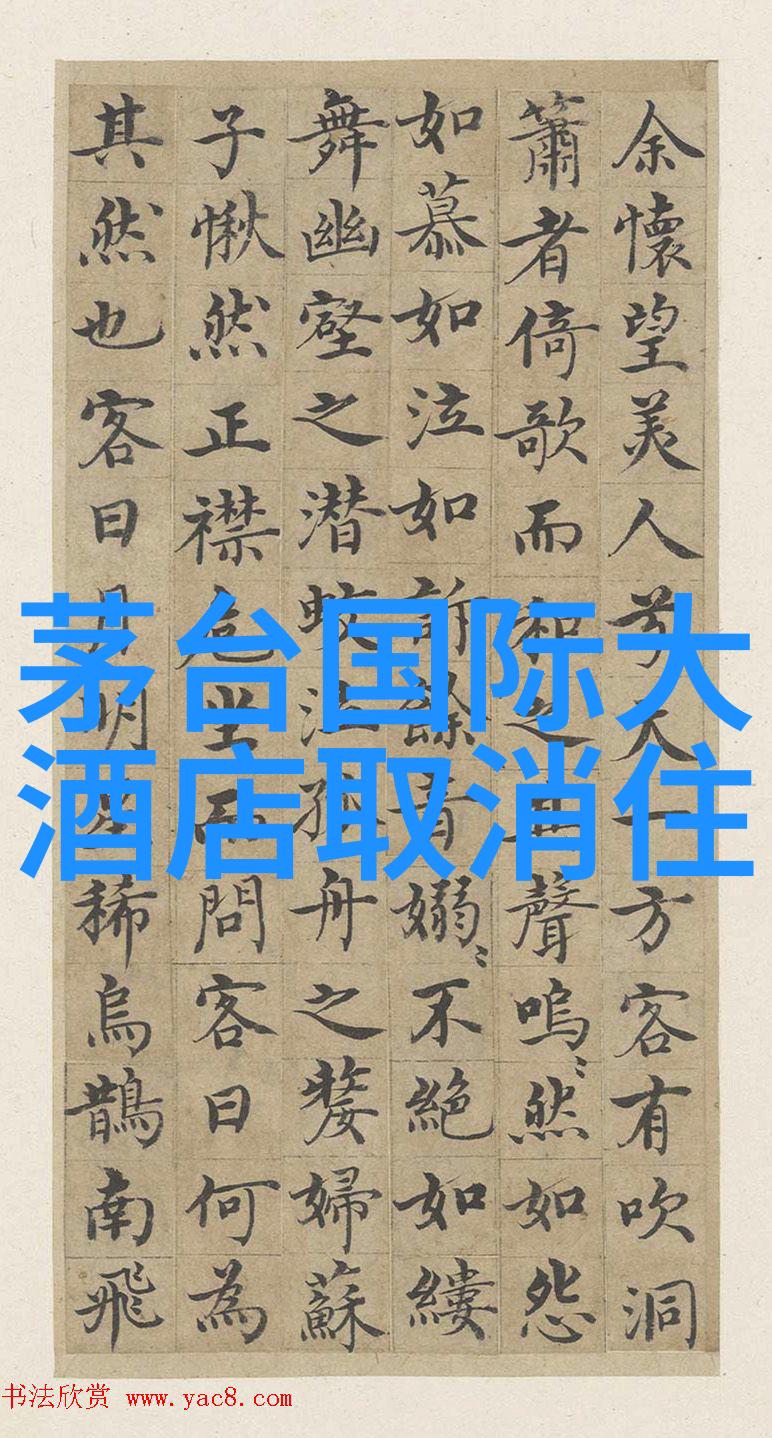 余懷望美人兮天一方客有吹洞
簫者倚歌而和之其聲嗚〻然如怨
如慕如泣如訴餘音嫋〻不絶如縷
舞幽壑之潜蛟泣孤舟之嫠婦蘇
子愀然正襟危坐而問客曰何為
其然也客曰月明星稀烏鵲南飛
茅台国际大
酒店取消住
书法欣赏 www.yac8.com